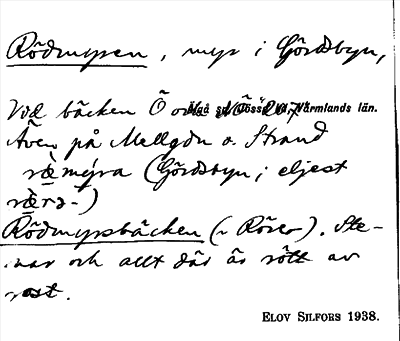 Rödmyren, myr i Gördsbyn,
Vid bäcken Ö om
Älgå sn, Jösse hd, Värmlands län.
Även på Mellgdn o. Strand
rǣmýra (Gördsbyn; eljest
rǣ̀rə-)
Rödmyrsbäcken (~ Rörer). Ste-
nar och allt där är rött av
rost.
ELOV SILFORS 1938.